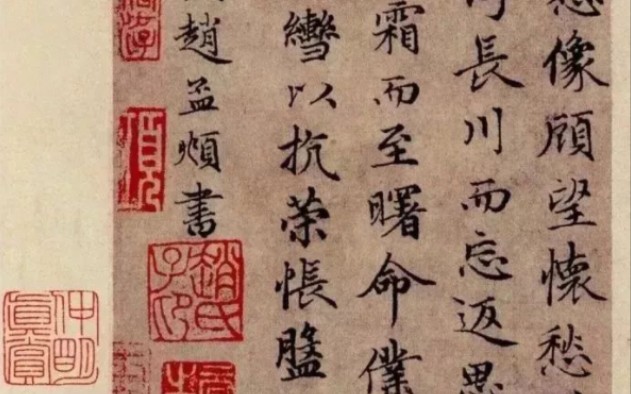 想像顧望懷愁
長川而忘返思
霜而至曙命僕
轡以抗策悵盤
趙孟頫書
項
趙氏子昂